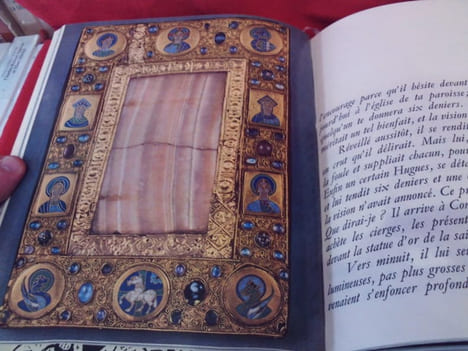 l'encourage parce qu'il hésite devant
but à l'église de ta paroisse;
quelqu'un te donnera six deniers.
un tel bienfait, et la vision
Réveillé aussitôt, il se rendi
crut qu'il délirait. Mais lui,
la foule et suppliait chacun, pour
Enfin un certain Hugues, se dé
lui tendit six deniers et une
la vision n'avait annoncé. Ce p
Que dirai-je ? Il arrive à Con
achète les cierges, les présen
devant la statue d'or de la sai
Vers minuit, il lui se
lumineuses, pas plus grosses
venaient s'enfoncer profond